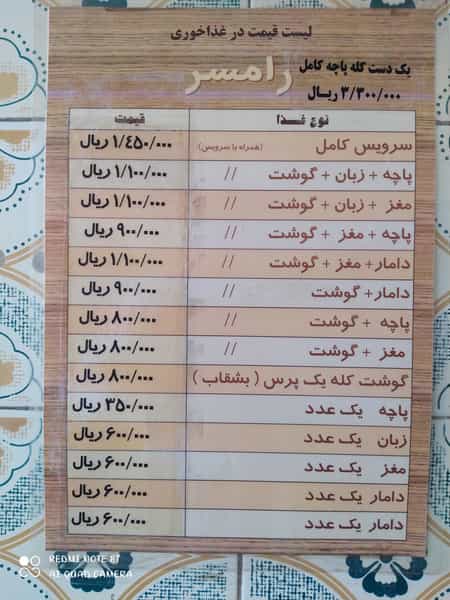 لیست قیمت در غذاخوری
رامسر
یک دست کله پاچه کامل
۳/۳۰۰/۰۰۰ ریـال
نوع غـذا قیمت
سرویس کامل (همراه با سرویس) ۱/۴۵۰/۰۰۰ ریال
پاچه + زبان + گوشت // ۱/۱۰۰/۰۰۰ ریال
مغز + زبان + گوشت // ۱/۱۰۰/۰۰۰ ریال
پاچه + مغز + گوشت // ۹۰۰/۰۰۰ ریال
دامار+ مغز + گوشت // ۱/۱۰۰/۰۰۰ ریال
دامار+ گوشت // ۹۰۰/۰۰۰ ریال
پاچه + گوشت // ۸۰۰/۰۰۰ ریال
مغز + گوشت // ۸۰۰/۰۰۰ ریال
گوشت کله یک پرس ( بشقاب ) ۸۰۰/۰۰۰ ریال
پاچه یک عدد ۳۵۰/۰۰۰ ریال
زبان یک عدد ۶۰۰/۰۰۰ ریال
مغز یک عدد ۶۰۰/۰۰۰ ریال
دامار یک عدد ۶۰۰/۰۰۰ ریال
دامار یک عدد ۶۰۰/۰۰۰ ریال
REDMI NOTE 8T
AI QUAD CAMERA